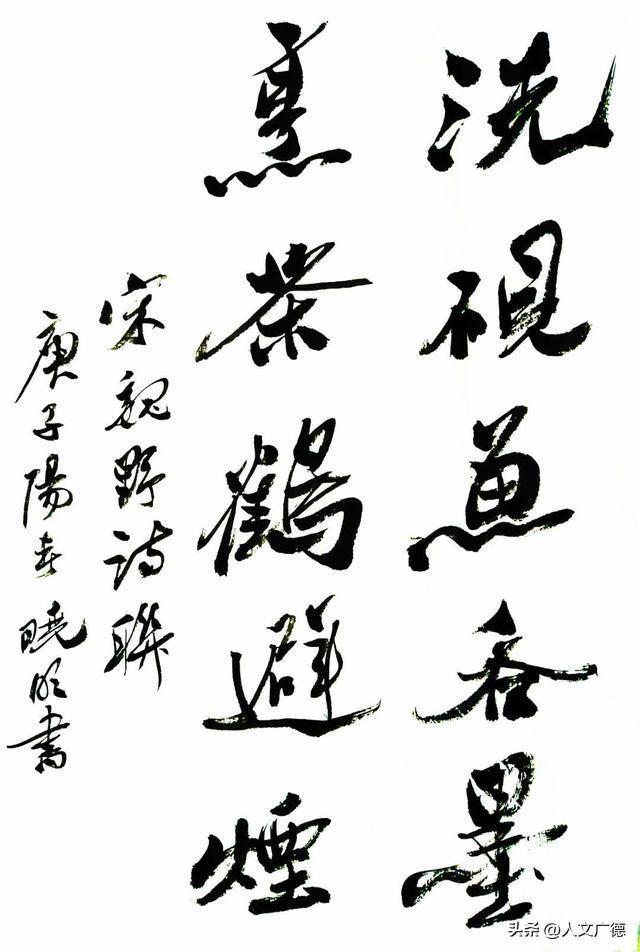 洗硯魚吞墨
烹茶鶴避煙
宋魏野詩聯
庚子陽春 曉明書
头条 @人文广德